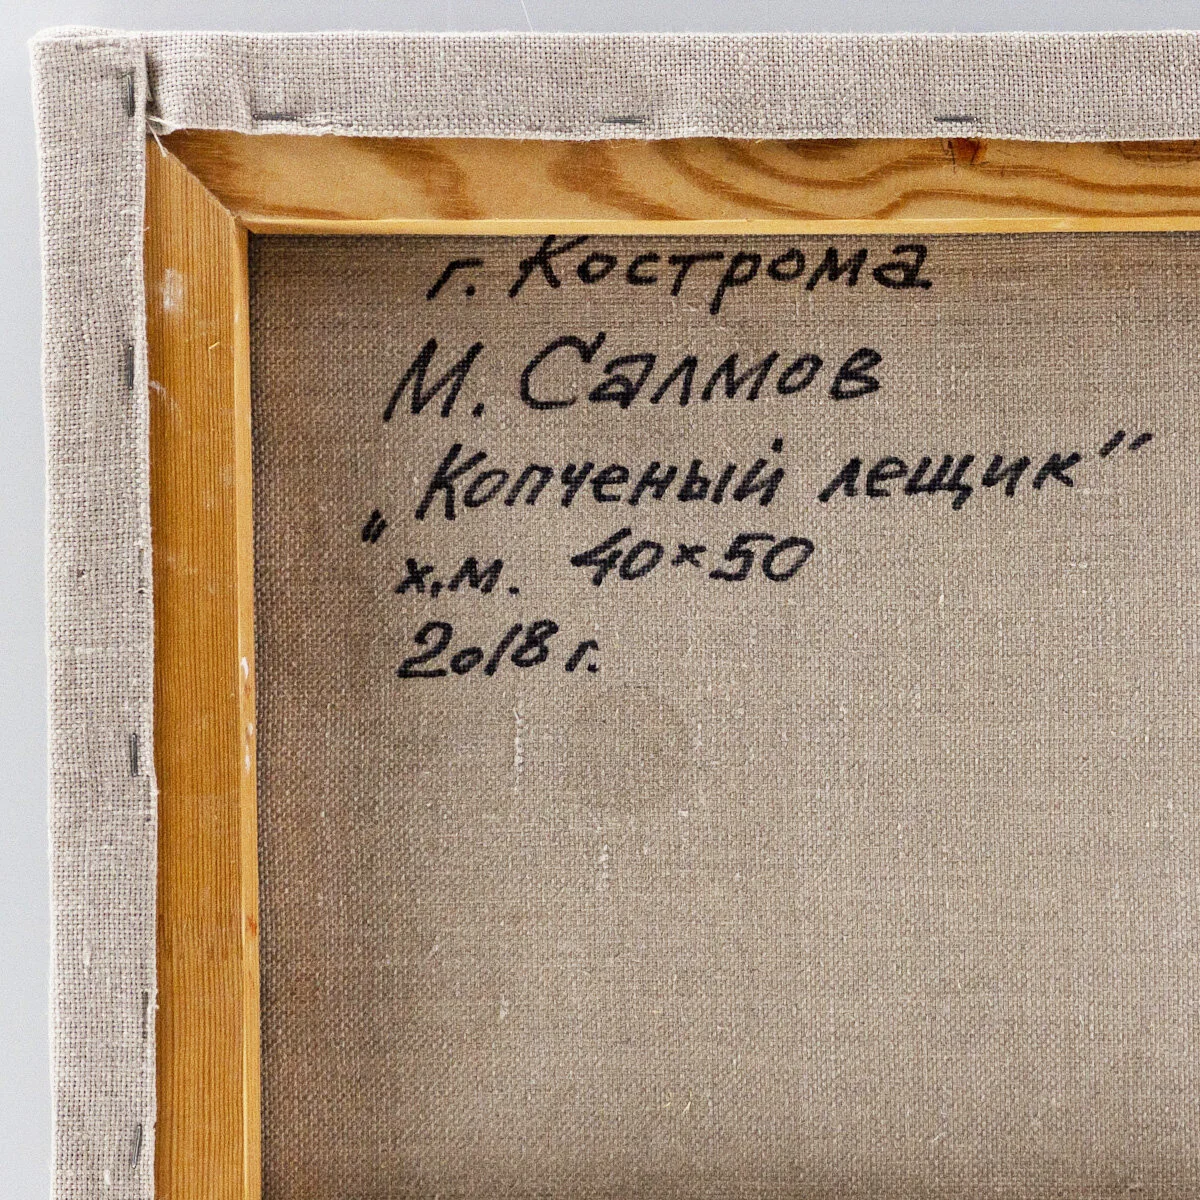 г. Кострома
М. Салмов
„Копченый лещик"
х.м. 40×50
2018 г.